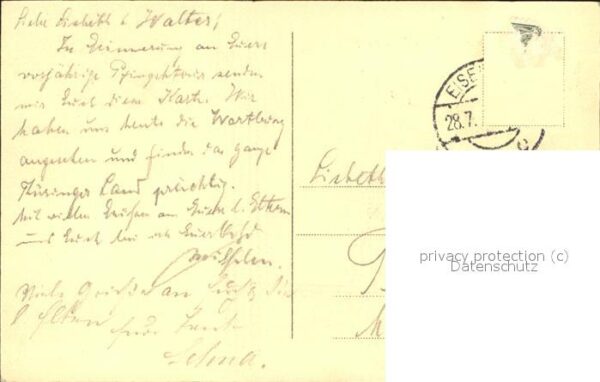 Liebe Lisbeth & Walter!
In Erinnerung an Eure
vorjährige Pfingsttour senden
wir Euch diese Karte. Wir
haben uns heute die Wartburg
angesehen und finden das ganze
Thüringer Land prächtig.
Mit vielen Grüßen an Eure l. Eltern
und Euch bin ich Euer
Wilhelm.
Viele Grüße an Euch
l. Eltern Eure Tante
Selma.
EISEN
28.7.
Lisbeth
privacy protection (c)
Datenschutz